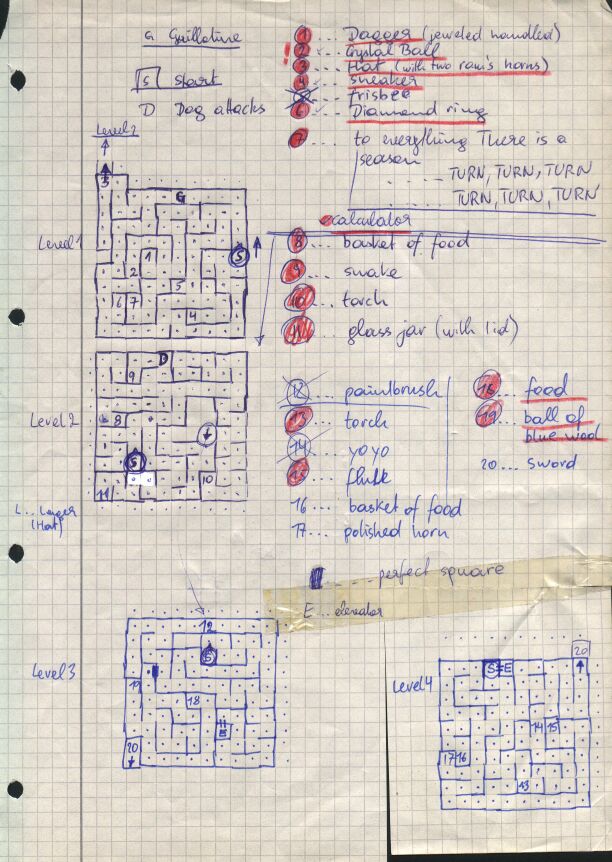 G Guillotine
S start
D Dog attacks
1 ... Dagger (jeweled handled)
2 ... Crystal Ball
3 ... Hat (with two ram's horns)
4 ... sneaker
frisbee
6 ... Diamond ring
7 ... to everything There is a
season
... TURN, TURN, TURN
TURN, TURN, TURN
calculator
8 ... basket of food
9 ... snake
10 ... torch
11 ... glass jar (with lid)
12 ... paintbrush
13 ... torch
14 ... yoyo
15 ... flute
16 ... basket of food
17 ... polished horn
18 ... food
19 ... ball of
blue wool
20 ... sword
perfect square
E ... elevator
Level 2
3
G
Level 1
1
S
2
5
6 7
4
D
9
Level 2
8
S
11
10
(Hat)
12
Level 3
S
19
18
E
20
Level 4
S=E
20
14 15
17 16
13